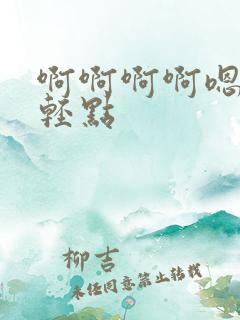 啊啊啊啊嗯
輕點
柳吉
未经同意禁止转载